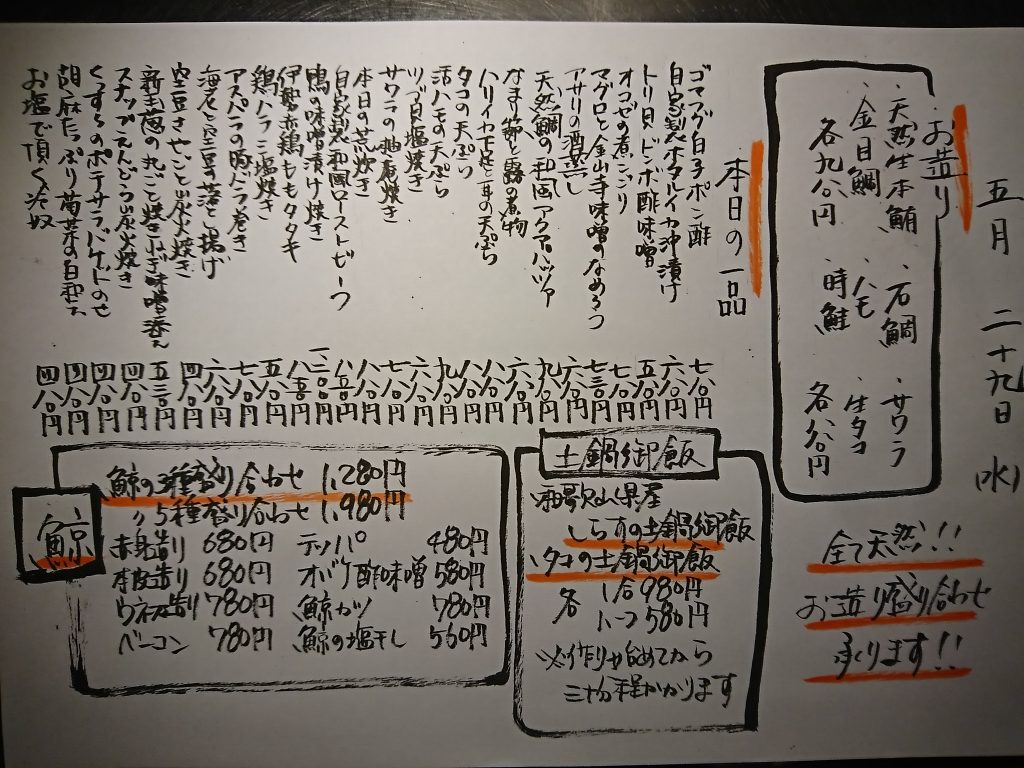 五月 二十九日 (水)
お造り
・天然生本鮪 ・石鯛 ・サワラ
・金目鯛 ・ハモ ・生タコ
各九八〇円 時鮭 各八八〇円
全て天然!!
お造り盛り合わせ
承ります!!
本日の一品
ゴマフグ白子ポン酢 七八〇円
自家製ホタルイカ沖漬け 六八〇円
トリ貝ドンボ酢味噌 五八〇円
オコゼの煮こごり 七八〇円
マグロと金山寺味噌のなめろう 七三〇円
アサリの酒蒸し 六八〇円
天然鯛の和風アクアパッツァ 九八〇円
なまり節と蕗の煮物 六八〇円
ハリイカ下足と丼の天ぷら 八八〇円
タコの天ぷら 八八〇円
活ハモの天ぷら 九八〇円
ツブ貝塩焼き 六八〇円
サワラの柚庵焼き 七八〇円
本日の荒炊き 八八〇円
自家製和風ローストビーフ
鴨の味噌漬け焼き
伊勢赤鶏ももタタキ
鶏ハラミ塩焼き 五八〇円
アスパラの豚バラ巻き 七八〇円
海老と空豆の落とし揚げ 六八〇円
空豆さやごと炭火焼き 四八〇円
新玉葱の丸ごと焼き 味噌添え 五三〇円
スナップえんどう炭火焼き 四八〇円
くずし のポテサラバゲットのせ 四八〇円
胡麻たっぷり 菜の白和え 四八〇円
お塩で頂く冷奴 四八〇円
土鍋御飯
しらすの土鍋御飯
タコの土鍋御飯
各 1合 980円
ハーフ 580円
※作り始めてから
三十分程かかります
鯨
鯨の3種盛り合わせ 1,280円
〃 5種盛り合わせ 1,980円
赤身造り 680円 テッパ 480円
本皮造り 680円 オバケ酢味噌 580円
ウネス造り 780円 鯨カツ 780円
ベーコン 780円 鯨の塩干し 560円